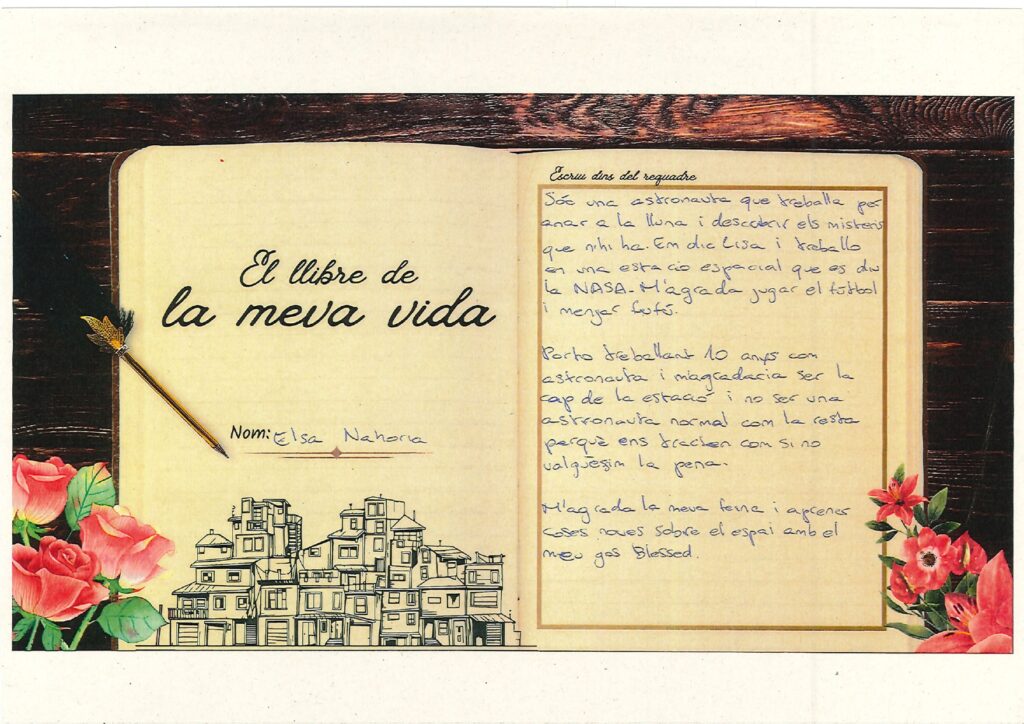 El llibre de
la meva vida
Nom: Elsa Nahoria
Escriu dins del requadre
Sóc una astronauta que treballa per
anar a la lluna i descobrir els misteris
que n'hi ha. Em dic Lisa i treballo
en una estació espacial que es diu
la NASA. M'agrada jugar el fútbol
i menjar fufú.
Porto treballant 10 anys com
astronauta i m'agradaria ser la
cap de la estació i no ser una
astronauta normal com la resta
perquè ens tracten com si no
valguèsim la pena.
M'agrada la meva feina i aprendre
coses noves sobre el espai amb el
meu gos Blessed.